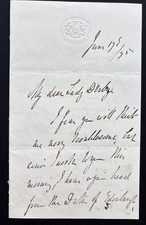 June 17th/75
My dear Lady Derby
I fear you will think
me very troublesome but
since I wrote to you this
morning, I have again heard
from the Duke of Edinburgh